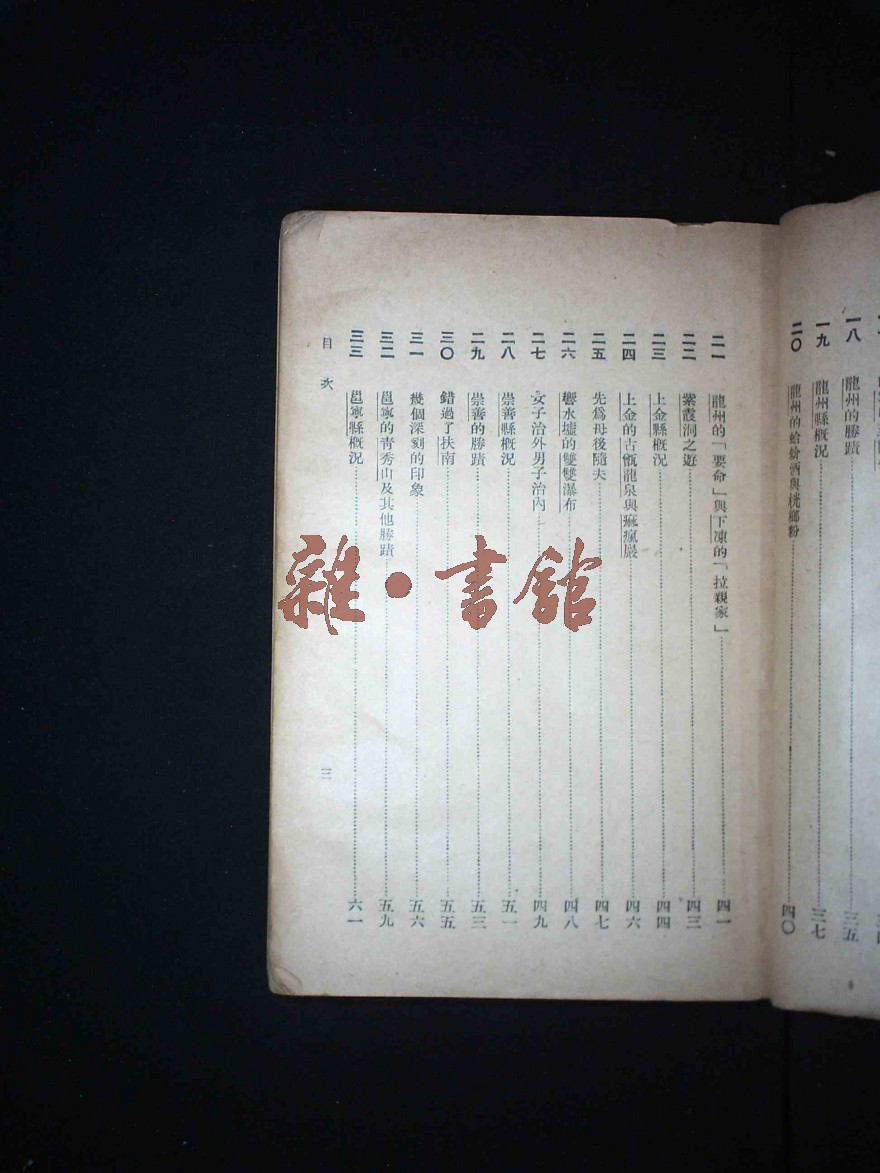 一八 龍州的勝蹟 三五
一九 龍州縣概況 三七
二〇 龍州的蛤蚧酒與桄榔粉 四〇
二一 龍州的「要命」與下凍的「拉親家」 四一
二二 紫霞洞之遊 四三
二三 上金縣概況 四四
二四 上金的古甑龍泉與痲瘋巖 四六
二五 先爲母後隨夫 四七
二六 響水墟的雙雙瀑布 四八
二七 女子治外男子治內 四九
二八 崇善縣概況 五一
二九 崇善的勝蹟 五三
三〇 錯過了扶南 五五
三一 幾個深刻的印象 五六
三二 邕寧的青秀山及其他勝蹟 五九
三三 邕寧縣概況 六一
目次
三
雜·書館